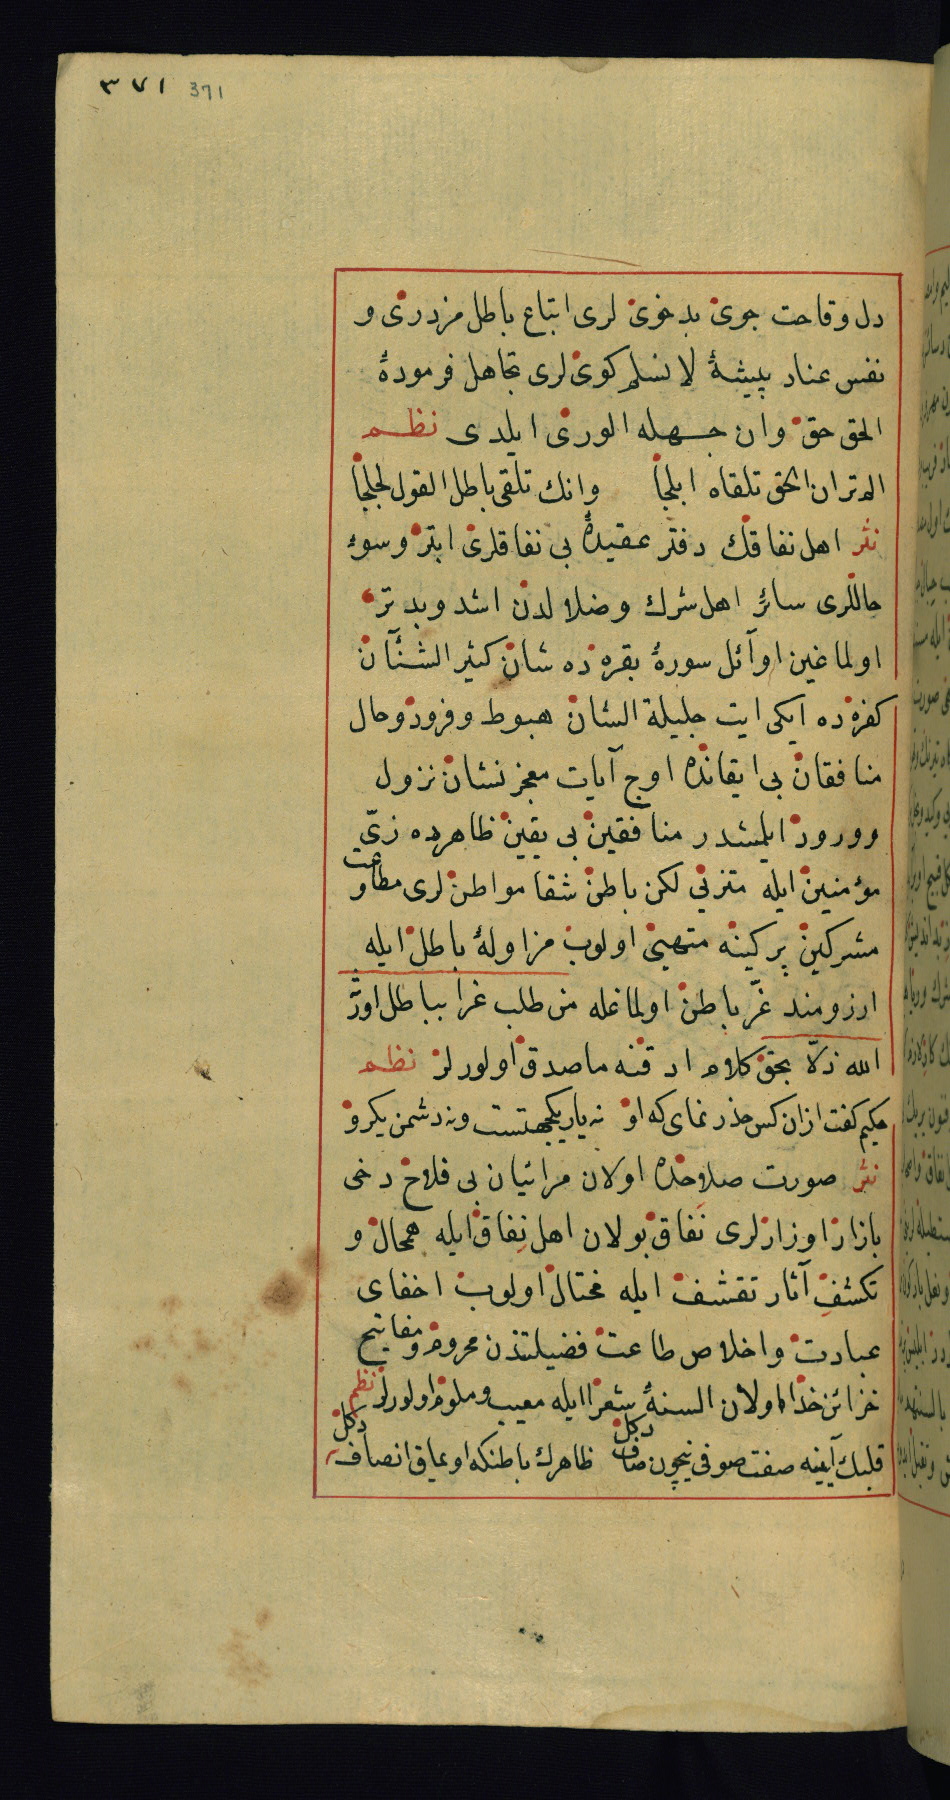 ٣٧١ 371
دل وقاحت جوی بدخوی لری اتباع باطل مزدری و
نفس عناد پیشهٔ لا نسلم کوی لری تجاهل فرمودهٔ
الحق حق وان جهله الوری ایلدی نظم
الم تر ان الحق تلقاه ابلجا وانك تلقی باطل القول لجلجا
نثر اهل نفاقك دفتر عقیدهٔ بی نفاقلری ابتر و سوء
حاللری سائر اهل شرك وضلالدن اشد وبدتر
اولماغین اوآئل سورهٔ بقره ده شان کثیر الشنآن
کفره ده ایکی ایت جلیلة الشان هبوط وفرود وحال
منافقان بی ایقانده اوچ آیات معجز نشان نزول
وورود ایلمشدر منافقین بی یقین ظاهرده زیّ
مؤمنین ایله متزیی لکن باطن شقا مواطن لری مطاوعت
مشرکین پرکینه متهیئ اولوب مزاولهٔ باطل ایله
ارزومند غرّ باطن اولماغله من طلب غرا بباطل اورثه
الله ذلا بحق کلام ادقنه ماصدق اولورلر نظم
حکیم کفت ازان کس حذر نمای که او نه یار یکجهتست ونه دشمن یکرو
نثر صورت صلاحده اولان مرائیان بی فلاح دخی
بازار اوزارلری نفاق بولان اهل نفاق ایله همحال و
تکشف آثار تقشف ایله مختال اولوب اخفای
عبادت واخلاص طاعت فضیلتندن محروم ومفاتیح
خزائن خدا اولان السنهٔ شعرا ایله معیب وملوم اولورلر نظم
قلبك آیینه صفت صوفی نیچون صاف دکل ظاهرك باطنکه اویماق انصاف دکل